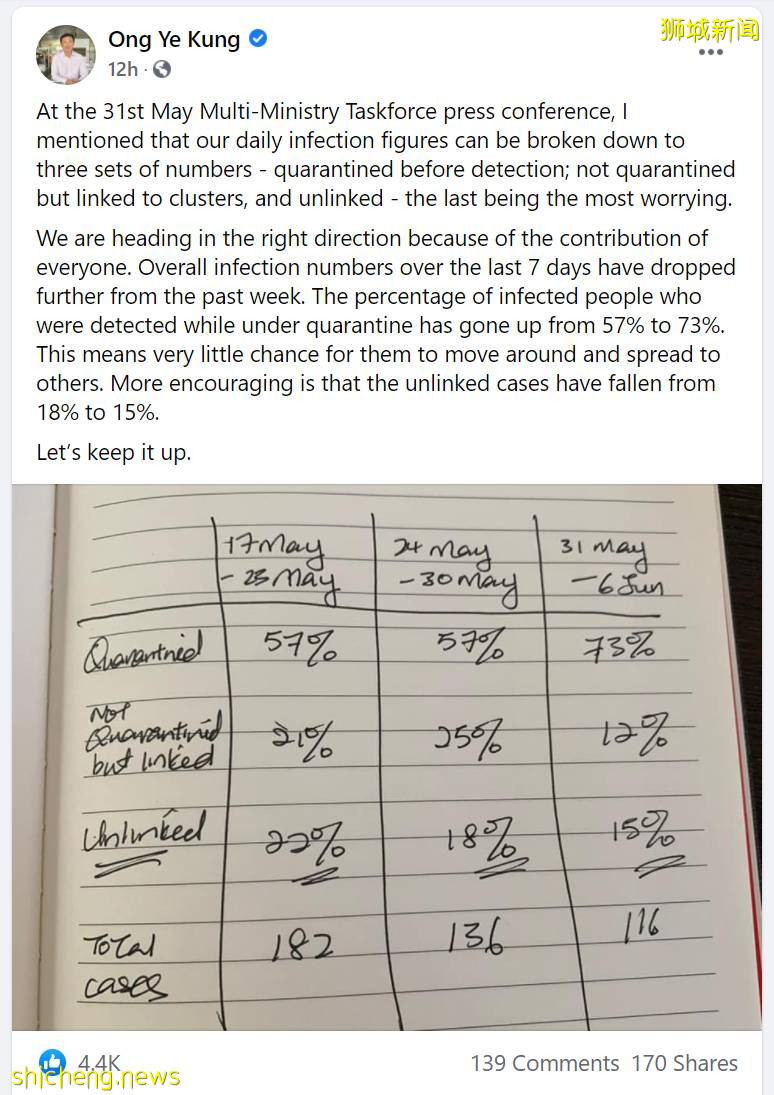 Ong Ye Kung
狮城新闻
12h
At the 31st May Multi-Ministry Taskforce press conference, I
mentioned that our daily infection figures can be broken down to
three sets of numbers - quarantined before detection; not quarantined
but linked to clusters, and unlinked - the last being the most worrying.
We are heading in the right direction because of the contribution of
everyone. Overall infection numbers over the last 7 days have dropped
further from the past week. The percentage of infected people who
were detected while under quarantine has gone up from 57% to 73%.
This means very little chance for them to move around and spread to
others. More encouraging is that the unlinked cases have fallen from
18% to 15%.
Let's keep it up.
17 May 24 May 31 May
- 23 May - 30 May - 6 Jun
Quarantined 57% 57% 73%
Not
Quarantined 21% 25% 12%
but linked
Unlinked 22% 18% 15%
Total 182 136 116
cases
4.4K 139 Comments 170 Shares
shicheng.news